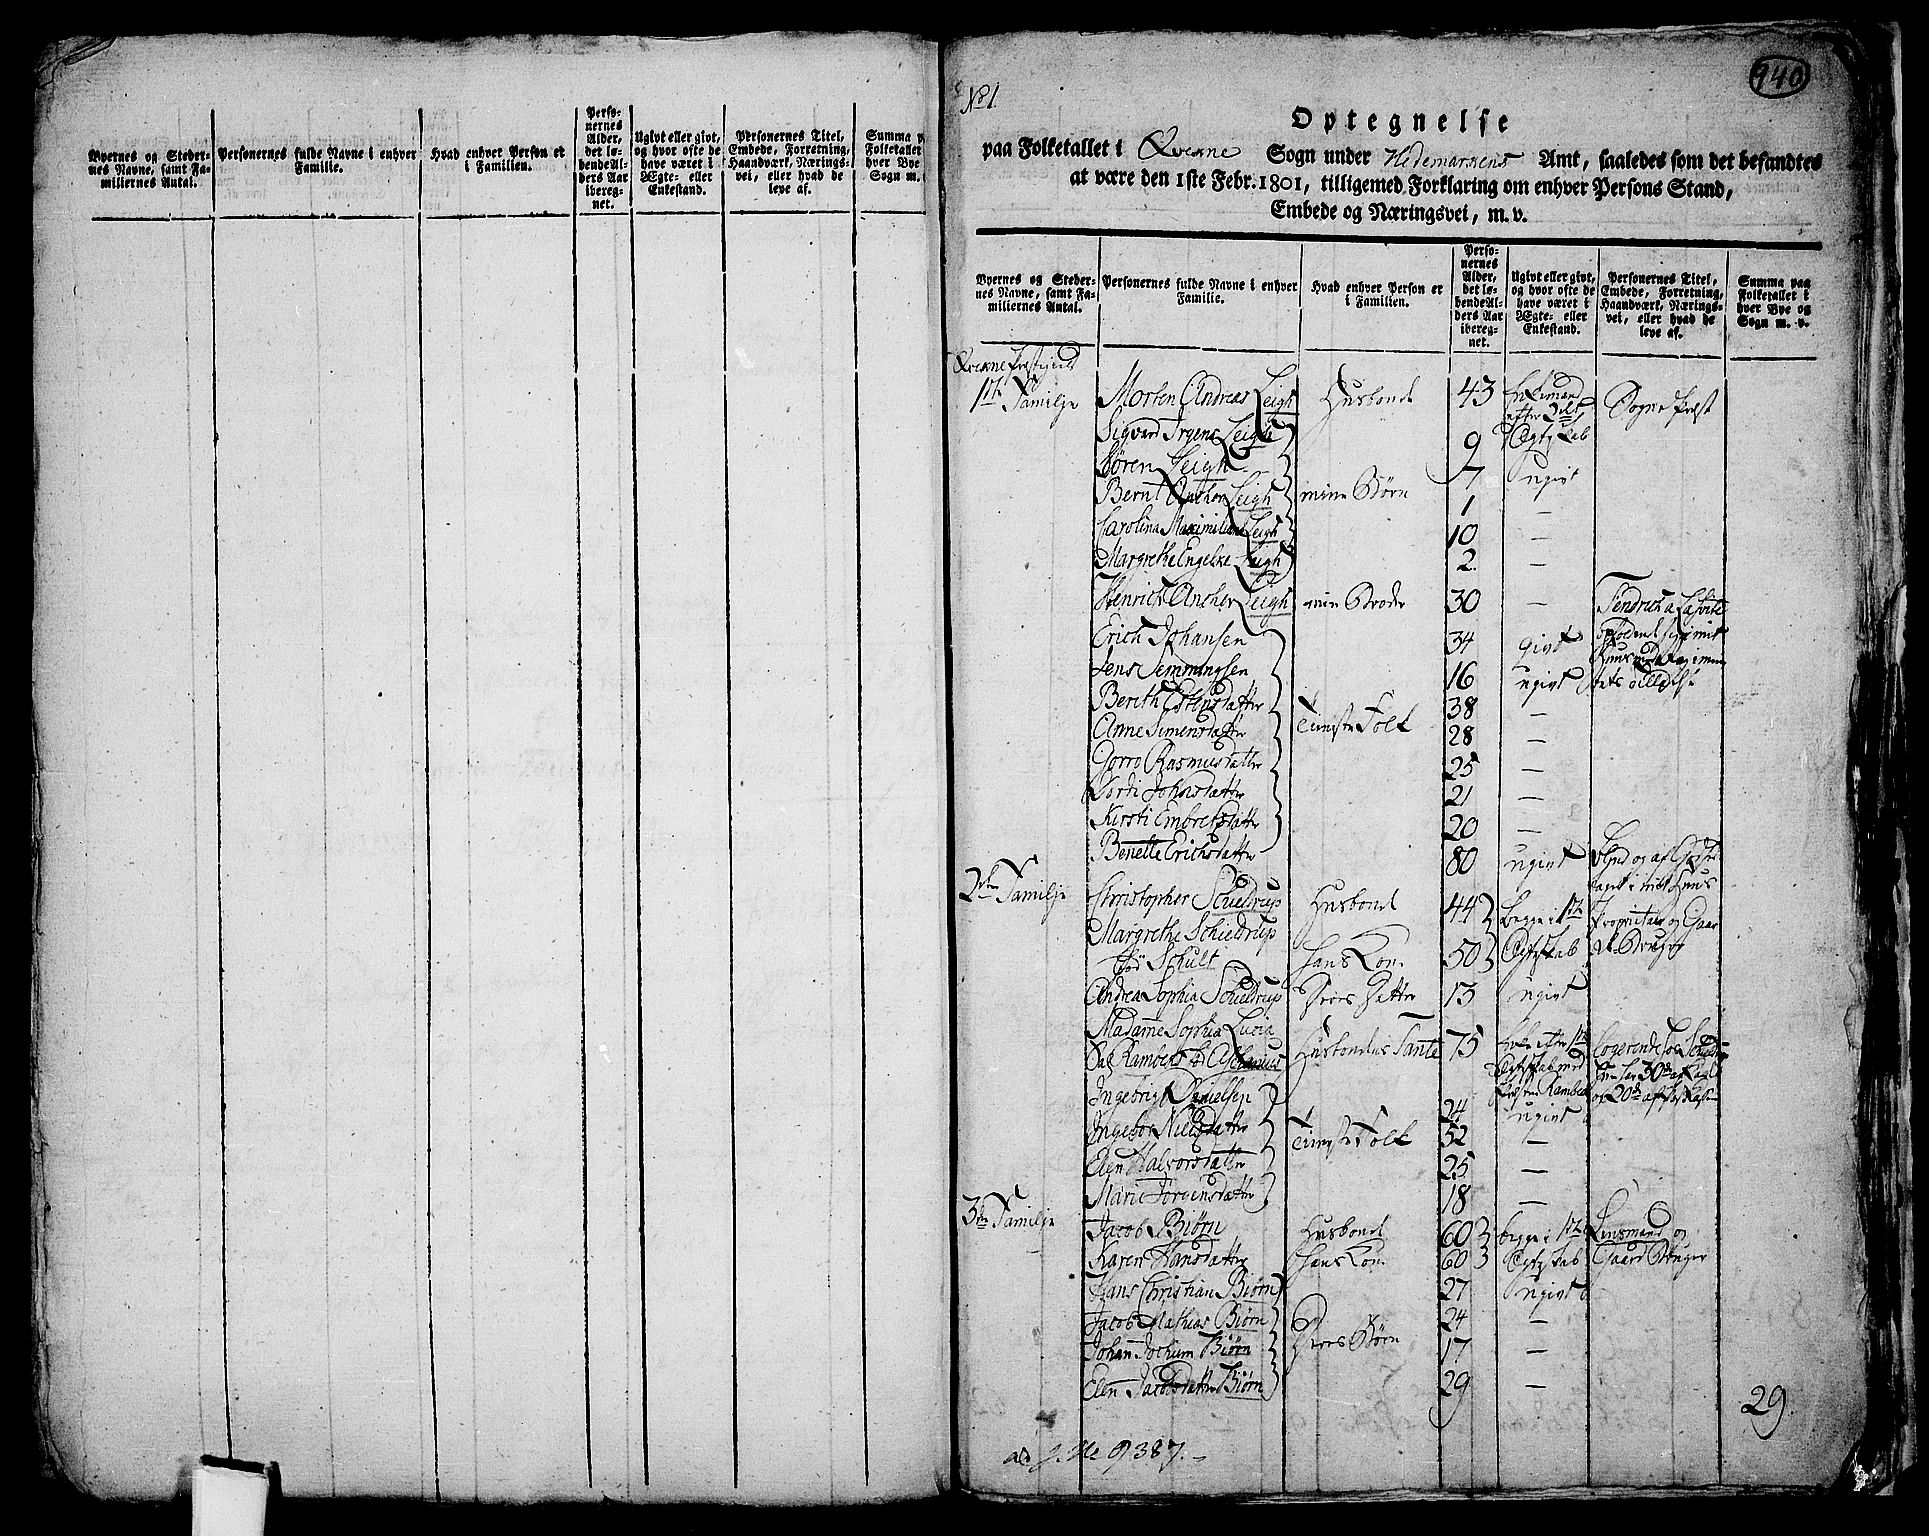 Byernes og Steder-
nes Navne, samt Fa-
miliernes Antal.
Personernes fulde Navne i enhver
Familie.
Hvad enhver Person er
i Familien.
Perso-
nernes
Alder,
det lø-
bende Al-
ders Aar
ibereg-
net.
Ugivt eller givt,
og hvor ofte de
have været i
Ægte- eller
Enkestand.
Personernes Titel,
Embede, Forretning,
Haandværk, Nærings-
vei, eller hvad de
leve af.
Summa p
Folketallet
hver Bye
Sogn m.
No 1.
940
Optegnelse
paa Folketallet i Qvekne Sogn under Hedemarkens Amt, saaledes som det befandtes
at være den 1ste Febr. 1801, tilligemed Forklaring om enhver Persons Stand,
Embede og Næringsvei, m. v.
Byernes og Steder-
nes Navne, samt Fa-
miliernes Antal.
Personernes fulde Navne i enhver
Familie.
Hvad enhver Person er
i Familien.
Perso-
nernes
Alder,
det lø-
bende Al-
ders Aar
ibereg-
net.
Ugivt eller givt,
og hvor ofte de
have været i
Ægte- eller
Enkestand.
Personernes Titel,
Embede, Forretning,
Haandværk, Nærings-
vei, eller hvad de
leve af.
Summa paa
Folketallet i
hver Bye og
Sogn m. v.
Qvekne Præstegield
1ste Familje Morten Andreas Leigh Husbond 43 Enkemand Sogne Præst
efter 2det
Sigvard Irgens Leigh 9 Ægteskab
Sören Leigh 7 ugivt
Bernt Ancher Leigh mine Børn 1 —
Carolina Maximiliana Leigh 10 —
Margrethe Engelke Leigh 2 —
Henrich Ancher Leigh min Broder 30 —
Erich Johansen 34 givt
Jens Semmingsen 16 ugivt
Berith Estensdatter 38 —
Anne Simensdatter Tieniste Folk 28 —
Gorro Rasmusdatter 25 —
Johnsdatter 21 —
Kirsti Embretsdatter 20 —
Benette Erichsdatter 80 ugivt
2den Familje Christopher Schieldrup Husbond 44 begge i 1ste Proprietair og Gaar
Margrethe Schieldrup
fød Schult hans Kone 50 Ægteskab de Bruger
Andrea Sophia Schieldrup Deres Datter 13 ugivt
Madame Sophia Lucia
Sal Rambech f Aschanius Husbondens Tante 75 Enke efter 1ste Logerende hos Schieldrup
Ægteskab med
Ingebrigt Danielsen 24 ugivt
Ingebor Nielsdatter Tieniste Folk 52 —
Elen Halvorsdatter 25 —
Marie Jörgensdatter 18 —
3die Familje Jacob Biørn Husbond 60 begge i 1ste Lensmand og
Karen Hansdatter hans Kone 60 Ægteskab Gaard Bruger
Hans Christian Biørn 27 ugivt
Jacob Mathias Biørn 24 —
Johan Jochum Biørn Deres Børn 17 —
Elen Jacobsdatter Biørn 29 —
29.
387.